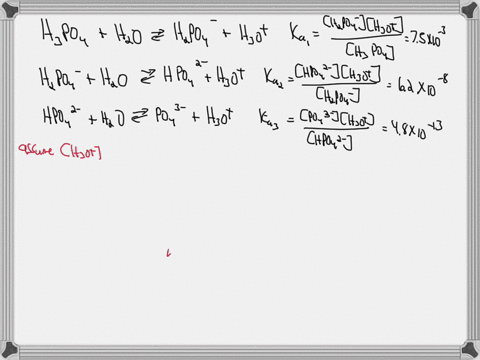 H₃PO₄ + H₂O ⇌ H₂PO₄⁻ + H₃O⁺ Ka₁ = [H₂PO₄⁻][H₃O⁺]/[H₃PO₄] = 7.5×10⁻³
H₂PO₄⁻ + H₂O ⇌ HPO₄²⁻ + H₃O⁺ Ka₂ = [HPO₄²⁻][H₃O⁺]/[H₂PO₄⁻] = 6.2×10⁻⁸
HPO₄²⁻ + H₂O ⇌ PO₄³⁻ + H₃O⁺ Ka₃ = [PO₄³⁻][H₃O⁺]/[HPO₄²⁻] = 4.8×10⁻¹³
assume [H₃O⁺]